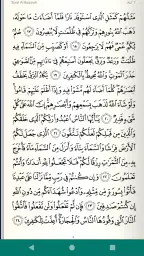 مَثَلُهُمْ كَمَثَلِ ٱلَّذِى ٱسْتَوْقَدَ نَارًا فَلَمَّآ أَضَآءَتْ مَا حَوْلَهُۥ
ذَهَبَ ٱللَّهُ بِنُورِهِمْ وَتَرَكَهُمْ فِى ظُلُمَـٰتٍ لَّا يُبْصِرُونَ ١٧ صُمٌّۢ
بُكْمٌ عُمْىٌ فَهُمْ لَا يَرْجِعُونَ ١٨ أَوْ كَصَيِّبٍ مِّنَ ٱلسَّمَآءِ فِيهِ
ظُلُمَـٰتٌ وَرَعْدٌ وَبَرْقٌ يَجْعَلُونَ أَصَـٰبِعَهُمْ فِىٓ ءَاذَانِهِم مِّنَ
ٱلصَّوَٰعِقِ حَذَرَ ٱلْمَوْتِ وَٱللَّهُ مُحِيطٌۢ بِٱلْكَـٰفِرِينَ ١٩ يَكَادُ ٱلْبَرْقُ
يَخْطَفُ أَبْصَـٰرَهُمْ كُلَّمَآ أَضَآءَ لَهُم مَّشَوْا۟ فِيهِ وَإِذَآ أَظْلَمَ عَلَيْهِمْ قَامُوا۟
وَلَوْ شَآءَ ٱللَّهُ لَذَهَبَ بِسَمْعِهِمْ وَأَبْصَـٰرِهِمْ إِنَّ ٱللَّهَ عَلَىٰ كُلِّ
شَىْءٍ قَدِيرٌ ٢٠ يَـٰٓأَيُّهَا ٱلنَّاسُ ٱعْبُدُوا۟ رَبَّكُمُ ٱلَّذِى خَلَقَكُمْ
وَٱلَّذِينَ مِن قَبْلِكُمْ لَعَلَّكُمْ تَتَّقُونَ ٢١ ٱلَّذِى جَعَلَ لَكُمُ
ٱلْأَرْضَ فِرَٰشًا وَٱلسَّمَآءَ بِنَآءً وَأَنزَلَ مِنَ ٱلسَّمَآءِ مَآءً فَأَخْرَجَ
بِهِۦ مِنَ ٱلثَّمَرَٰتِ رِزْقًا لَّكُمْ فَلَا تَجْعَلُوا۟ لِلَّهِ أَندَادًا وَأَنتُمْ
تَعْلَمُونَ ٢٢ وَإِن كُنتُمْ فِى رَيْبٍ مِّمَّا نَزَّلْنَا عَلَىٰ عَبْدِنَا
فَأْتُوا۟ بِسُورَةٍ مِّن مِّثْلِهِۦ وَٱدْعُوا۟ شُهَدَآءَكُم مِّن دُونِ ٱللَّهِ
إِن كُنتُمْ صَـٰدِقِينَ ٢٣ فَإِن لَّمْ تَفْعَلُوا۟ وَلَن تَفْعَلُوا۟ فَٱتَّقُوا۟
ٱلنَّارَ ٱلَّتِى وَقُودُهَا ٱلنَّاسُ وَٱلْحِجَارَةُ أُعِدَّتْ لِلْكَـٰفِرِينَ ٢٤